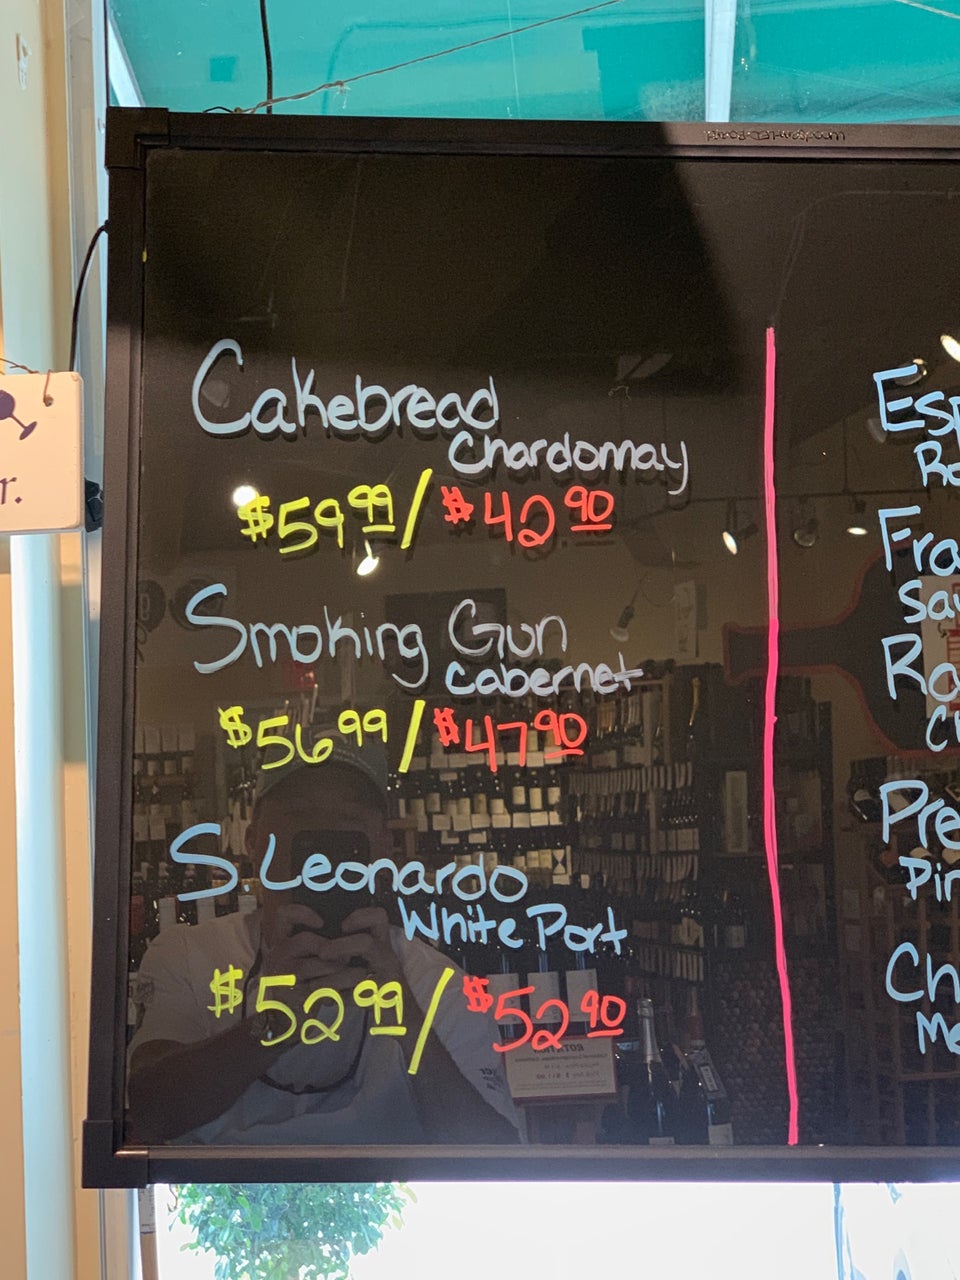 Cakebread
Chardonnay
$59.99 / $42.90
Smoking Gun
Cabernet
$56.99 / $47.90
S. Leonardo
White Port
$52.99 / $52.90
Esp
Ro
Fra
Sav
Ro
Ch
Pre
Pin
Ch
Me
r.